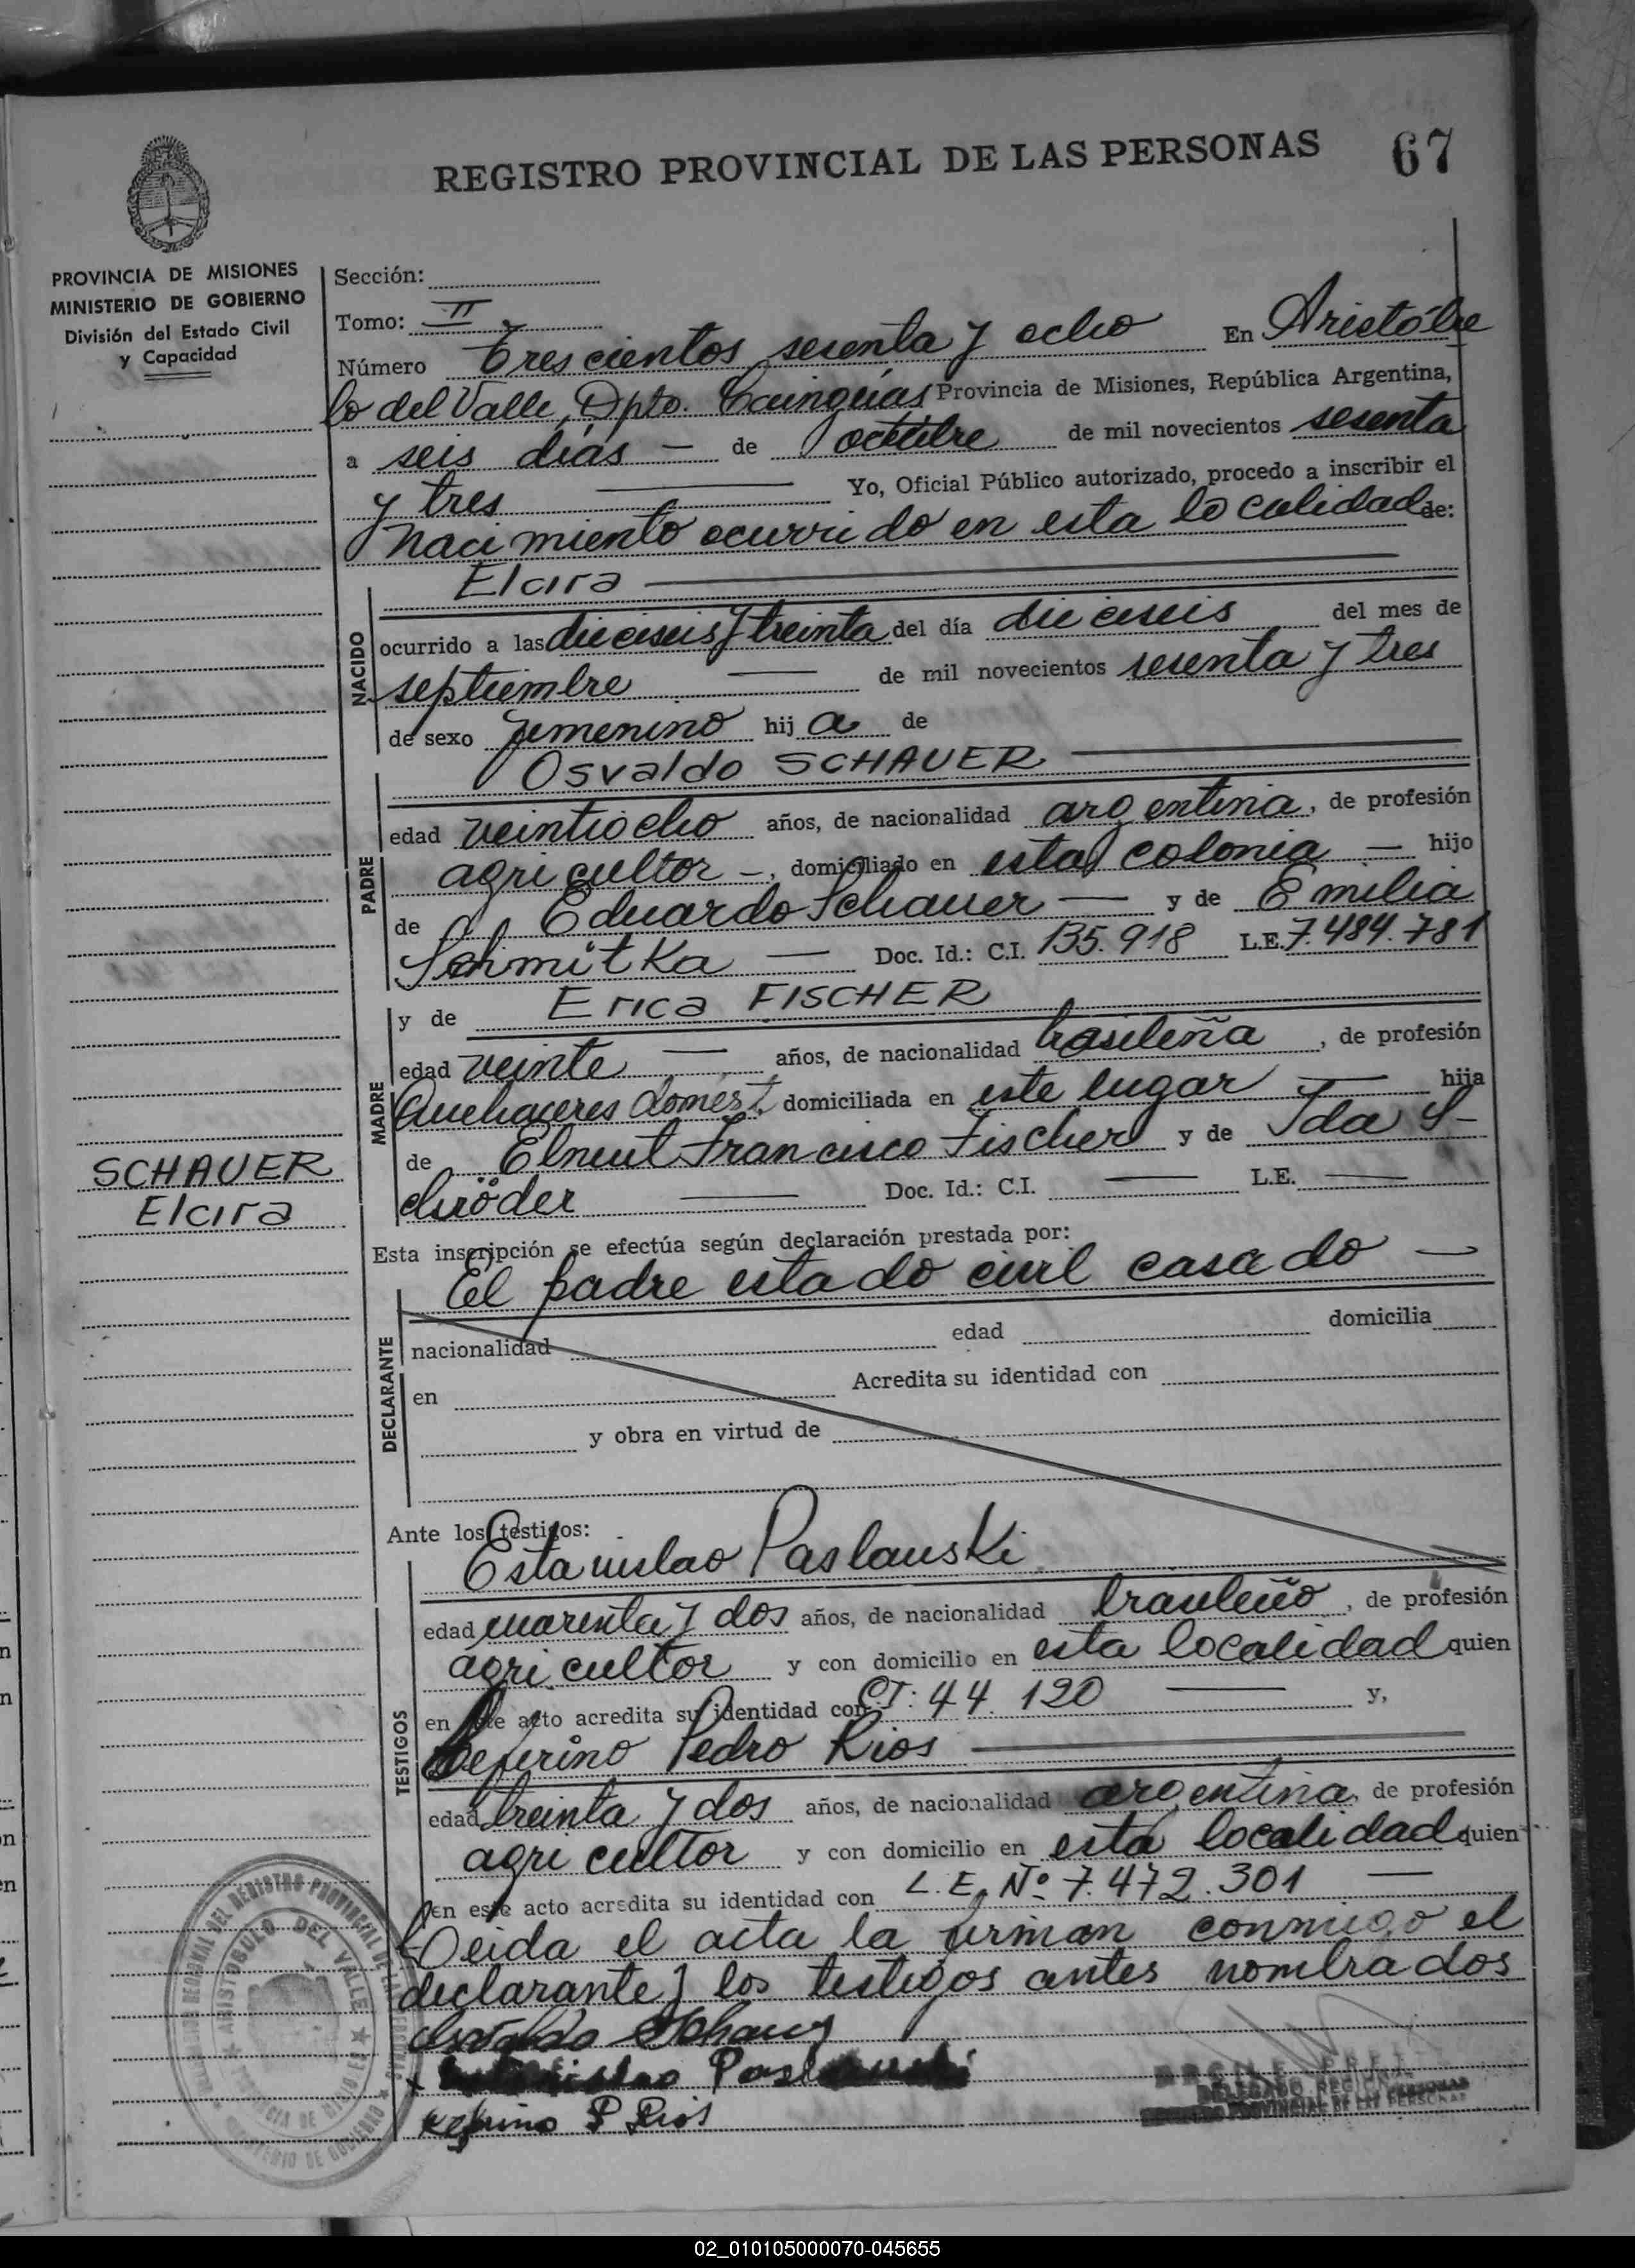 REGISTRO PROVINCIAL DE LAS PERSONAS 67
PROVINCIA DE MISIONES
MINISTERIO DE GOBIERNO
División del Estado Civil
y Capacidad
Sección:
Tomo: II
Número Trescientos sesenta y ocho En Aristóbu
lo del Valle, Dpto. Cainguás Provincia de Misiones, República Argentina,
a seis días — de octubre de mil novecientos sesenta
y tres — Yo, Oficial Público autorizado, procedo a inscribir el
nacimiento ocurrido en esta localidad de:
NACIDO
Elcira —
ocurrido a las dieciseis y treinta del día dieciseis del mes de
septiembre — de mil novecientos sesenta y tres
de sexo femenino hij a de
PADRE
Osvaldo SCHAUER —
edad veintiocho años, de nacionalidad argentina, de profesión
agricultor —, domiciliado en esta colonia — hijo
de Eduardo Schauer — y de Emilia
Schmitka — Doc. Id.: C.I. 135.918 L.E. 7.484.781
MADRE
y de Erica FISCHER
edad veinte — años, de nacionalidad brasileña, de profesión
Quehaceres domést. domiciliada en este lugar — hija
de Francisco Fischer y de Ida S-
chröder — Doc. Id.: C.I. — L.E. —
SCHAUER
Elcira
Esta inscripción se efectúa según declaración prestada por:
El padre estado civil casado —
DECLARANTE
nacionalidad edad domicilia
en Acredita su identidad con
y obra en virtud de
Ante los testigos:
TESTIGOS
Estanislao Paslauski
edad cuarenta y dos años, de nacionalidad brasileño, de profesión
agricultor y con domicilio en esta localidad quien
en este acto acredita su identidad con CI: 44.120 — y,
Ceferino Pedro Rios —
edad treinta y dos años, de nacionalidad argentina, de profesión
agricultor y con domicilio en esta localidad quien
en este acto acredita su identidad con L.E. Nº 7.472.301 —
Leida el acta la firman conmigo el
declarante y los testigos antes nombrados
Osvaldo Schauer
Estanislao Paslauski
Ceferino P Rios
REGIONAL DEL REGISTRO PROVINCIAL DE LAS PERSONAS
ARISTOBULO DEL VALLE
PROVINCIA DE MISIONES
MINISTERIO DE GOBIERNO
DELEGADO REGIONAL
REGISTRO PROVINCIAL DE LAS PERSONAS
02_010105000070-045655